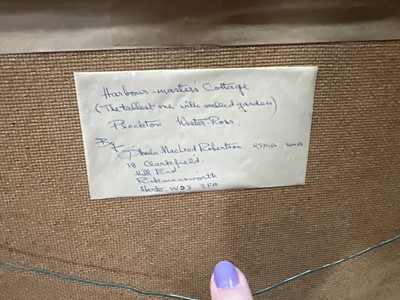 Harbour-master's Cottage
(The tallest one with walled garden)
Plockton Wester-Ross
By Sheila Macleod Robertson RSMA
18 Clarkfield
Mill End
Rickmansworth
Herts. WD3